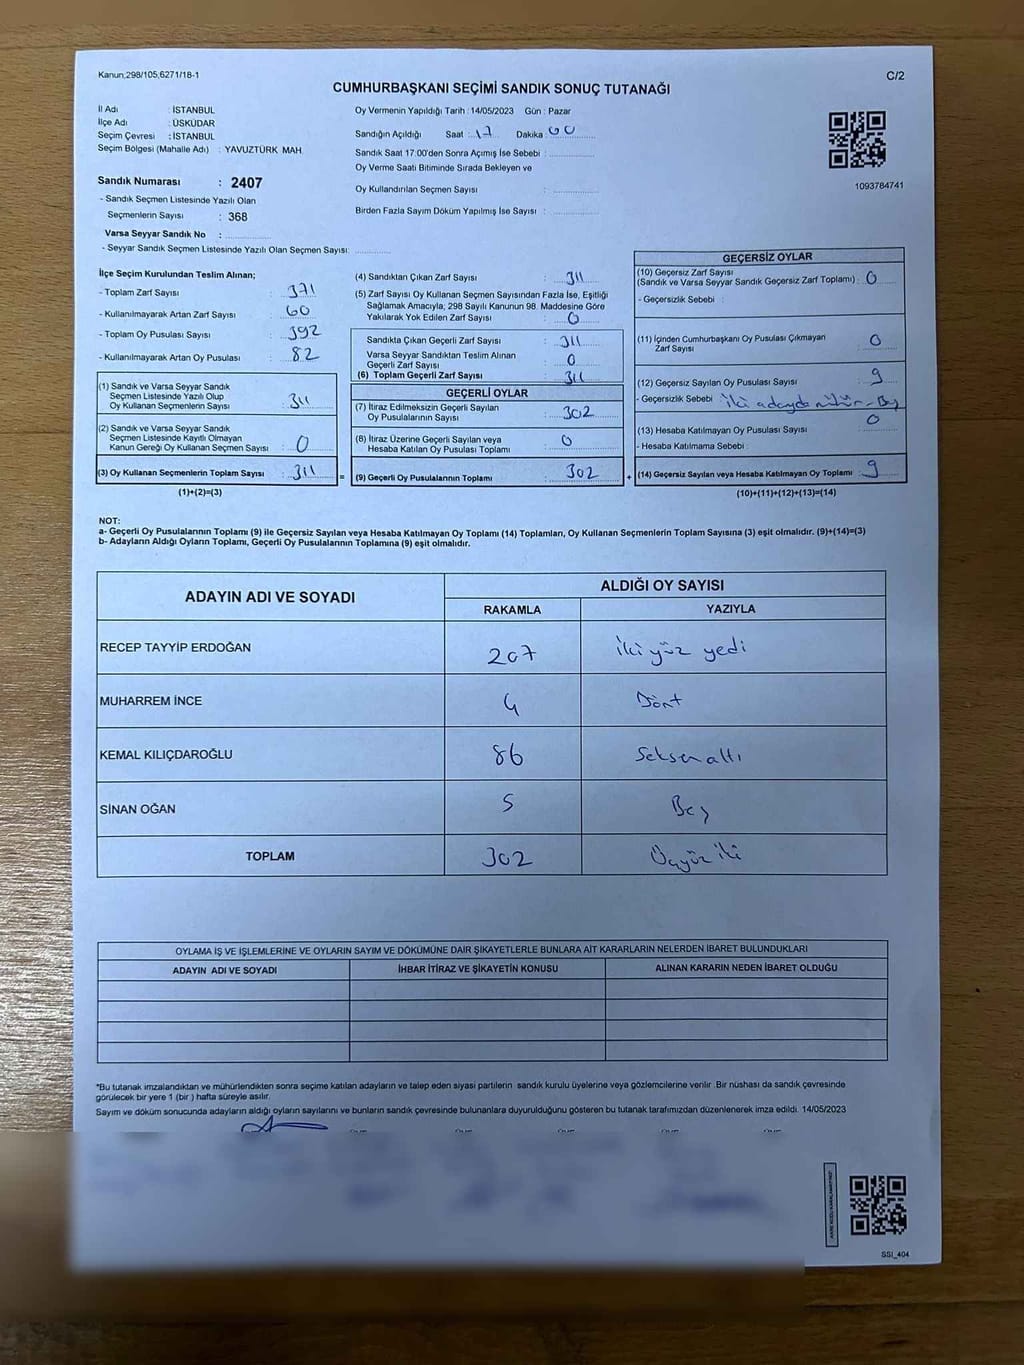 Kanun;298/105,6271/18-1
C/2
CUMHURBAŞKANI SEÇİMİ SANDIK SONUÇ TUTANAĞI
İl Adı : İSTANBUL
İlçe Adı : ÜSKÜDAR
Seçim Çevresi : İSTANBUL
Seçim Bölgesi (Mahalle Adı) : YAVUZTÜRK MAH.
Sandık Numarası : 2407
- Sandık Seçmen Listesinde Yazılı Olan
Seçmenlerin Sayısı : 368
Varsa Seyyar Sandık No :
- Seyyar Sandık Seçmen Listesinde Yazılı Olan Seçmen Sayısı:
Oy Vermenin Yapıldığı Tarih : 14/05/2023 Gün : Pazar
Sandığın Açıldığı Saat : 17 Dakika 00
Sandık Saat 17:00'den Sonra Açımış İse Sebebi :
Oy Verme Saati Bitiminde Sırada Bekleyen ve
Oy Kullandırılan Seçmen Sayısı :
Birden Fazla Sayım Döküm Yapılmış İse Sayısı :
1093784741
İlçe Seçim Kurulundan Teslim Alınan;
- Toplam Zarf Sayısı : 371
- Kullanılmayarak Artan Zarf Sayısı : 60
- Toplam Oy Pusulası Sayısı : 392
- Kullanılmayarak Artan Oy Pusulası : 82
(1) Sandık ve Varsa Seyyar Sandık
Seçmen Listesinde Yazılı Olup
Oy Kullanan Seçmenlerin Sayısı : 311
(2) Sandık ve Varsa Seyyar Sandık
Seçmen Listesinde Kayıtlı Olmayan
Kanun Gereği Oy Kullanan Seçmen Sayısı : 0
(3) Oy Kullanan Seçmenlerin Toplam Sayısı : 311
(1)+(2)=(3)
(4) Sandıktan Çıkan Zarf Sayısı : 311
(5) Zarf Sayısı Oy Kullanan Seçmen Sayısından Fazla İse, Eşitliği
Sağlamak Amacıyla; 298 Sayılı Kanunun 98. Maddesine Göre
Yakılarak Yok Edilen Zarf Sayısı : 0
Sandıkta Çıkan Geçerli Zarf Sayısı : 311
Varsa Seyyar Sandıktan Teslim Alınan
Geçerli Zarf Sayısı : 0
(6) Toplam Geçerli Zarf Sayısı : 311
GEÇERLİ OYLAR
(7) İtiraz Edilmeksizin Geçerli Sayılan
Oy Pusulalarının Sayısı : 302
(8) İtiraz Üzerine Geçerli Sayılan veya
Hesaba Katılan Oy Pusulası Toplamı : 0
= (9) Geçerli Oy Pusulalarının Toplamı : 302
GEÇERSİZ OYLAR
(10) Geçersiz Zarf Sayısı
(Sandık ve Varsa Seyyar Sandık Geçersiz Zarf Toplamı) : 0
- Geçersizlik Sebebi :
(11) İçinden Cumhurbaşkanı Oy Pusulası Çıkmayan
Zarf Sayısı : 0
(12) Geçersiz Sayılan Oy Pusulası Sayısı : 9
- Geçersizlik Sebebi : iki adayda
(13) Hesaba Katılmayan Oy Pusulası Sayısı : 0
- Hesaba Katılmama Sebebi :
+ (14) Geçersiz Sayılan veya Hesaba Katılmayan Oy Toplamı : 9
(10)+(11)+(12)+(13)=(14)
NOT:
a- Geçerli Oy Pusulalarının Toplamı (9) ile Geçersiz Sayılan veya Hesaba Katılmayan Oy Toplamı (14) Toplamları, Oy Kullanan Seçmenlerin Toplam Sayısına (3) eşit olmalıdır. (9)+(14)=(3)
b- Adayların Aldığı Oyların Toplamı, Geçerli Oy Pusulalarının Toplamına (9) eşit olmalıdır.
ADAYIN ADI VE SOYADI ALDIĞI OY SAYISI
RAKAMLA YAZIYLA
RECEP TAYYİP ERDOĞAN 207 İkiyüz yedi
MUHARREM İNCE 4 Dört
KEMAL KILIÇDAROĞLU 86 Seksen altı
SİNAN OĞAN 5 Beş
TOPLAM 302 Üçyüz iki
OYLAMA İŞ VE İŞLEMLERİNE VE OYLARIN SAYIM VE DÖKÜMÜNE DAİR ŞİKAYETLERLE BUNLARA AİT KARARLARIN NELERDEN İBARET BULUNDUKLARI
ADAYIN ADI VE SOYADI İHBAR İTİRAZ VE ŞİKAYETİN KONUSU ALINAN KARARIN NEDEN İBARET OLDUĞU
*Bu tutanak imzalandıktan ve mühürlendikten sonra seçime katılan adayların ve talep eden siyasi partilerin sandık kurulu üyelerine veya gözlemcilerine verilir .Bir nüshası da sandık çevresinde
görülecek bir yere 1 (bir ) hafta süreyle asılır.
Sayım ve döküm sonucunda adayların aldığı oyların sayılarını ve bunların sandık çevresinde bulunanlara duyurulduğunu gösteren bu tutanak tarafımızdan düzenlenerek imza edildi. 14/05/2023
SSI_404